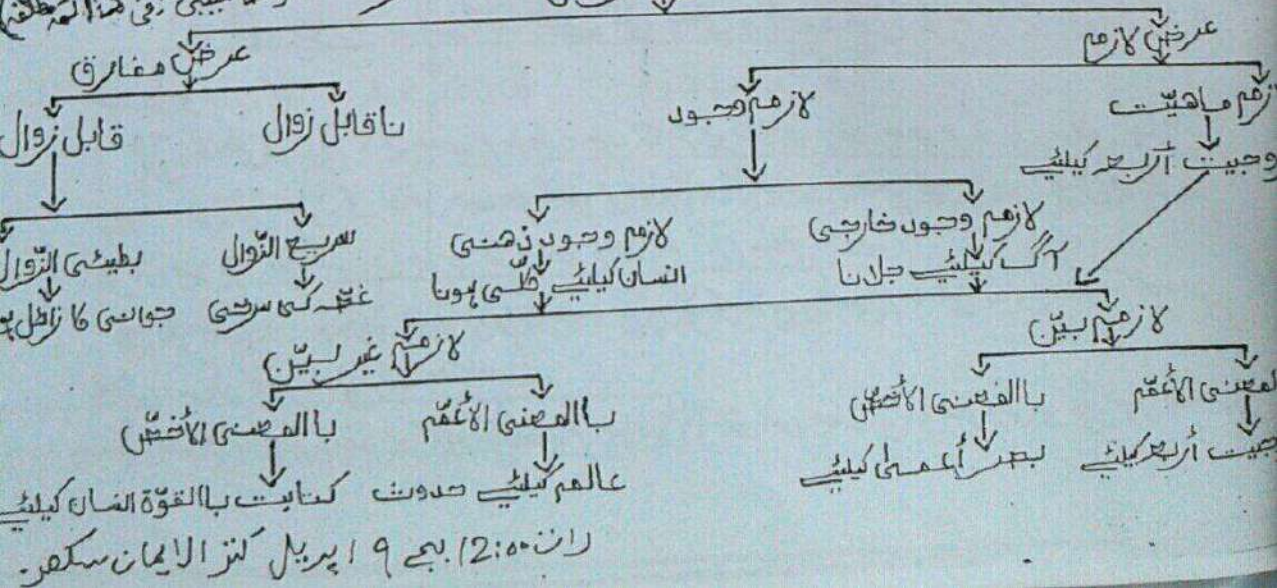 عرض لازم
عرض مفارق
لازم وجود
ناقابل زوال
قابل زوال
لازم وجود خارجی
آگ کیلئیے جلانا
لازم وجود ذھنی
انسان کیلئیے کلّی ہونا
سریع الزّوال
غصّہ کی سرخی
بطیئی الزّوال
جوانی کا زائل
لازم بیّن
لازم غیر بیّن
باالمعنی الأخصّ
بصر أعمیٰ کیلئیے
باالمعنی الأعمّ
عالم کیلئیے حدوث
باالمعنی الأخصّ
کتابت باالقوّۃ انسان کیلئیے
رات 12:00 بجے ۹ اپریل کنز الایمان سکھر۔